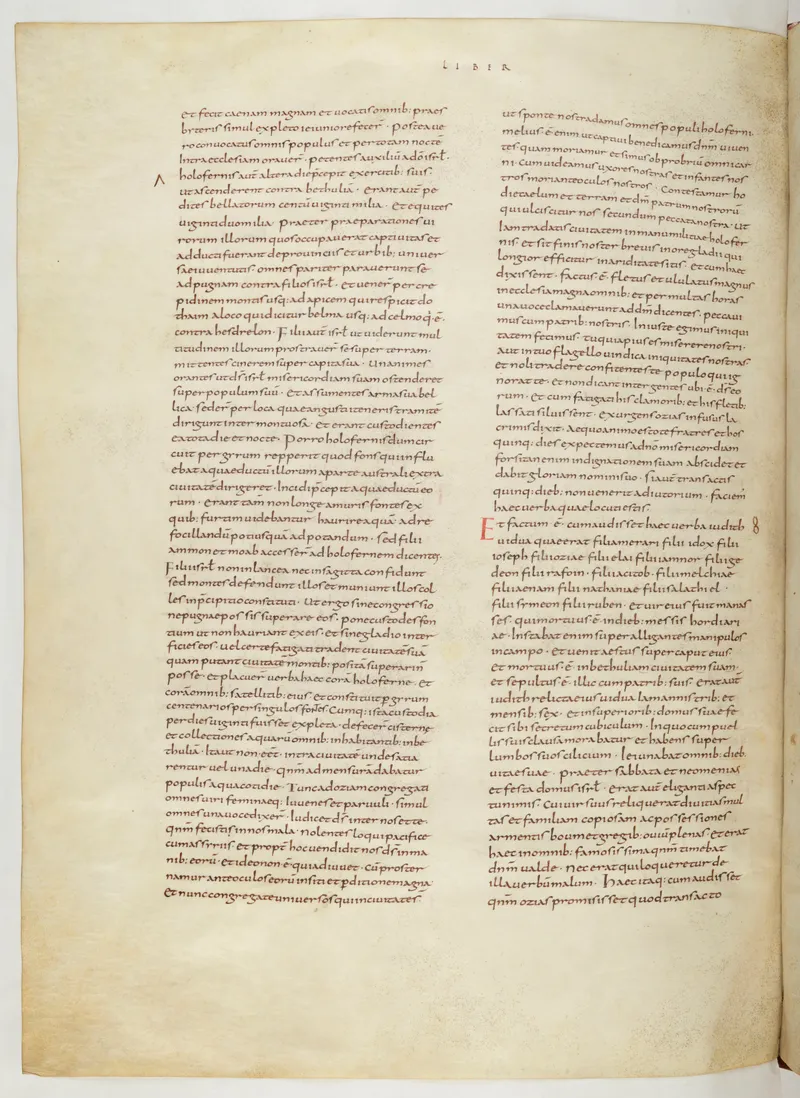 LIBER
et fecit caenam magnam et uocatis omnib: praes
biteris simul expleto ieiunio refecer̄ · Postea ue
ro conuocatus omnis populus et per totam nocte
Intra ecclesiam orauer̄ · petentes auxiliū a dō isrl̄ ·
holofernis aut̄ altera die p̄cepit exercitib: suis
ut ascenderent contra bethuliā · erant aut̄ pe
dites bellatorum centū uiginti milia · et equites
uiginti duo milia · praeter praeparationes ui
rorum illorum quos occupauerat captiuitas et
adducti fuerant de prouinciis et urbib: uniuer
sae iuuentutis · omnes pariter parauerunt se
ad pugnam contra filios isrl̄ · et uener̄ per cre
pidinem montis usq: ad apicem qui respicit do
thaim a loco qui dicitur belma usq: ad celmo q̄ ē
contra hesdrelon · Filii aut̄ isrl̄ ut uiderunt mul
titudinem illorum prostrauer̄ se super terram ·
mittentes cinerem super capita sua · Unanimes
orantes ut ds̄ isrl̄ misericordiam suam ostenderet
super populum suū · et assumentes arma sua bel
lica · seder̄ per loca quae angusti itineris tramite
dirigunt inter montuosa · et erant custodientes
ea tota die et nocte · Porro holofernis dum cir
cuit per gyrum repperit quod fons qui influ
ebat aquaeductū illorum a parte australi extra
ciuitatē dirigeret · Incidi p̄cepit aquaeductū eo
rum · erant tam̄ non longe a muris fontes ex
quib: furtim uidebantur haurire aquā ad re
focillandū potius quā ad potandum · sed filii
ammon et moab accesser̄ ad holofernem dicentes ·
Filii isrl̄ non in lancea nec in sagitta confidunt
sed montes defendunt illos et muniunt illos col
les in p̄cipitio constituti · Ut ergo sine congressio
ne pugnae possis superare eos · pone custodes fon
tium ut non hauriant ex eis · et sine gladio inter
ficies eos · uel certe fatigati tradent ciuitatē suā
quam putant ciuitatē montib: positā superari n̄
posse · et placuer̄ uerba haec corā holoferne · et
corā omnib: satellitib: eius · et constituit p gyrum
centenarios per singulos fontes · Cumq: ista custodia
per dies uiginti fuisset expleta · defecer̄ cisterne
et collectiones aquarū omnib: inhabitantib: in be
thulia · Ita ut non eēt intra ciuitatē unde satia
rentur uel una die · qnm̄ ad mensurā dabatur
populis aqua cotidie · Tunc ad oziam congregati
omnes uiri feminaeq: Iuuenes et paruuli · simul
omnes una uoce dixer̄ · Iudicet ds̄ inter nos et te ·
qnm̄ fecisti in nos mala · nolentes loqui pacifice
cum assiriis et propt̄ hoc uendidit nos ds̄ in ma
nib: eorū · et ideo non ē qui adiuuet · Cū proster
namur ante oculos eorū in siti et pditione magna ·
et nunc congregate uniuersos qui in ciuitate s̄
ut sponte nos tradamus omnes populi holoferni ·
melius ē enim ut captiui benedicamus dnm̄ uiuen
tes quam moriamur et simus obprobriū omni car
ni · Cum uideamus uxores nostras et infantes nos
tros mori ante oculos nostros · Contestamur ho
die caelum et terram et dm̄ patrum nostrorū
qui ulciscitur nos secundum peccata nostra · Ut
Iam tradatis ciuitatem in manu militiae holofer
nis et sit finis noster breuis in ore gladii qui
longior efficitur in ariditate sitis · et cum haec
dixissent · factus ē fletus et ululatus magnus
in ecclesia magna omnib: et per multas horas
una uoce clamauerunt ad dm̄ dicentes · peccaui
mus cum patrib: nostris · Iniuste egimus iniqui
tatem fecimus · tu quia pius es miserere nostri ·
Aut in tuo flagello uindica iniquitates nostras
et noli tradere confitentes te populo qui ig
norat te · et non dicant inter gentes ubi ē ds̄ eo
rum · et cum fatigati his clamorib: et his fletib:
lassati siluissent · exurgens ozias infusus la
crimis dixit · Aequo animo estote fratres et hos
quinq: dies expectemus a dn̄o misericordiam
forsitan enim indignationem suam abscidet et
dabit gloriam nomini suo · si aut̄ transactis
quinq: dieb: non uenerit adiutorium · faciem̄
haec uerba quae locuti estis ·
Et factum ē · cum audisset haec uerba iudith 8
uidua quae erat filia merari filii idox filii
ioseph filii oziae filii elai filii iamnor filii ge
deon filii rafoin · filii acitob · filii melchiae
filii aenam filii nathaniae filii salathiel ·
filii symeon filii ruben · et uir eius fuit manas
ses · qui mortuus ē · in dieb: messis hordiari
ae · Instabat enim super alligantes manipulos
in campo · et uenit aestus super caput eius
et mortuus ē · in bethulia ciuitatem suam ·
et sepultus ē · illic cum patrib: suis · erat aut̄
iudith relicta eius uidua Iam annis trib: et
mensib: sex · et in superiorib: domus suae fe
cit sibi secretum cubiculum · In quo cum puel
lis suis clausa morabatur et habens super
lumbos suos cilicium · Ieiunabat omnib: dieb:
uitae suae · praeter sabbata et neomenias
et festa domus isrl̄ · erat aut̄ eliganti aspec
tu nimis · Cui uir suus reliquerat diuitias mul
tas et familiam copiosam ac possessiones
armentis boum et gregib: ouiū plenas et erat
haec in omnib: famosissima qnm̄ timebat
dnm̄ ualde · nec erat qui loqueretur de
illa uerbū malum · Haec itaq: cum audisset
qnm̄ ozias promisisset quod transacto